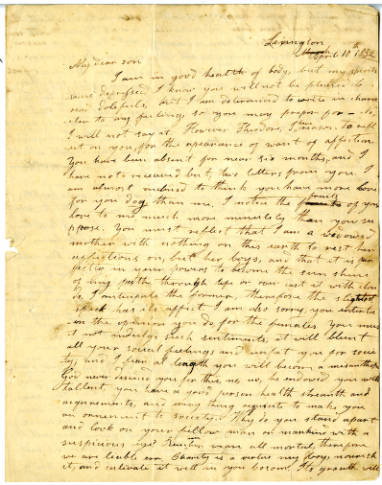 Lexington
April 10th 1832
My dear son
I am in good health of body, but my spirits
some depressed I know you will not be pleased to
read dolefuls, but I am determined to write in charac
ter to my feelings so you may prepare for
I will not say it, However Theodore, I have reason to refl
ect on you, for the apearance of want of affection
You have been absent for near six months, and I
have not received but two letters from you. I
am almost inclined to think you have more love
for your dog than me. I notice the of your
love to me much more minutely than you su
ppose. You must reflect that I am a widowed
mother with nothing on this earth to rest her
affections on, but her boys, and that it is
in your powers to become the sun shine
of my path through life or over cast it with clou
ds. I anticipate the former, therefore the slightest
has its affect I am also sorry you entertain
the opinion you do, for the females You must
not indulge such sentiments, it will blunt
all your social feelings and unfit you for socie
ty, and I fear at length you will become a misanthrope
God never desined you for this no, no, he endowed you with
tallent you have a good person health strength and
acquirements, and every thing requisite to make you
an ornement to society. Why do you stand apart
and look on your fellow man or mankind with a
suspicious eye? we are all mortal, therefore
we are liable to err Charity is a virtue my boy, nourish
it, and cultivate it well in your bosom. Its growth will